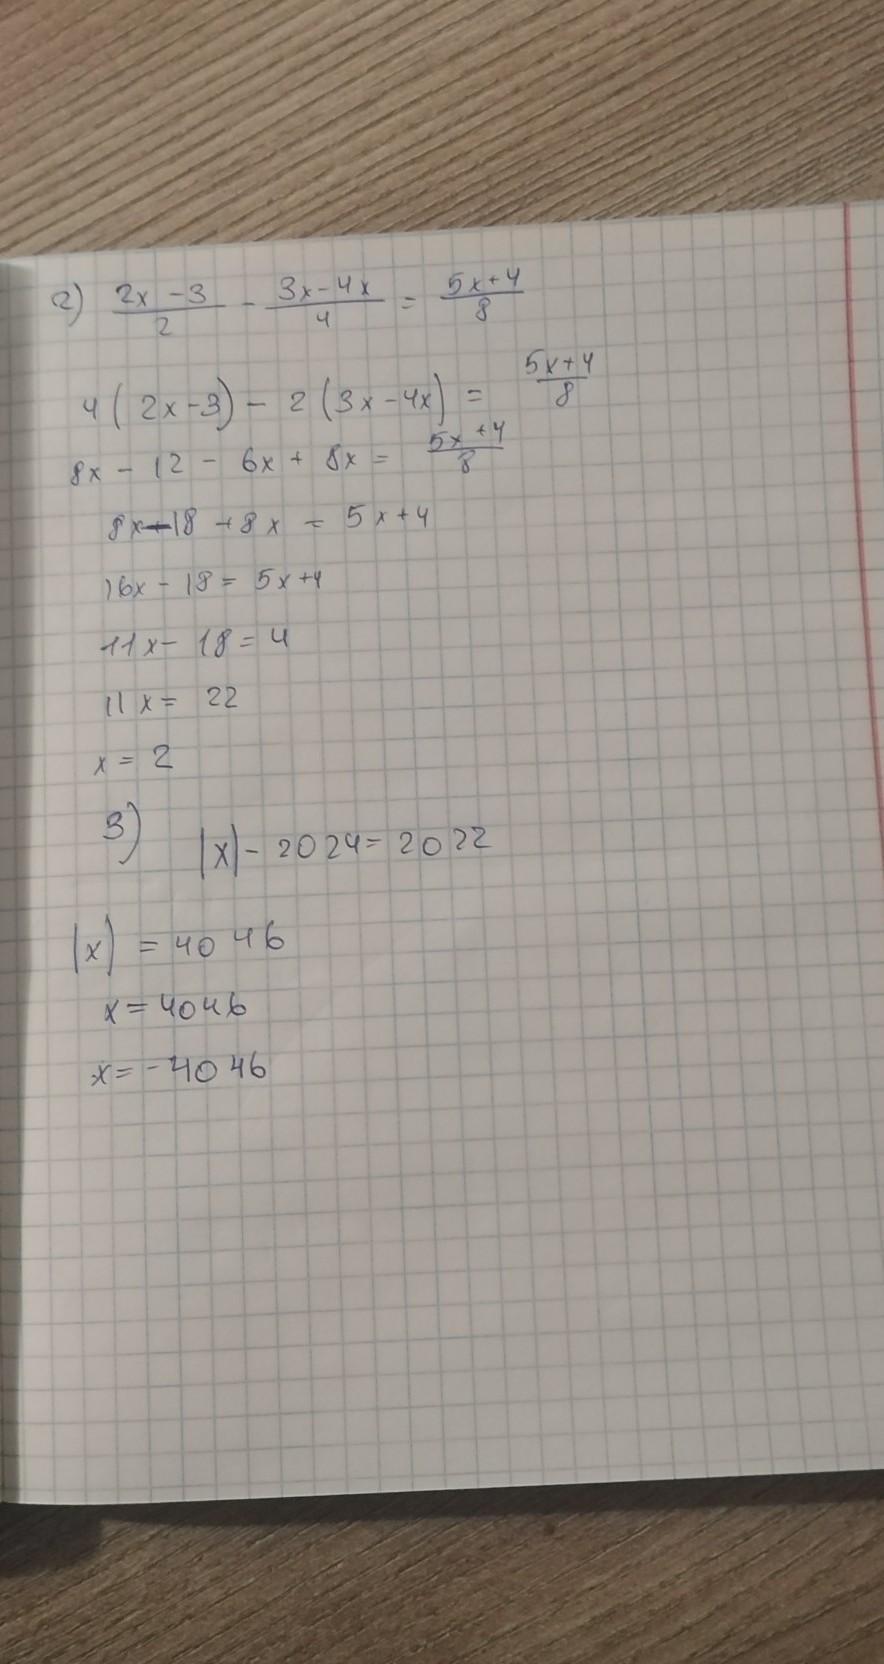 2) (2x - 3)/2 - (3x - 4x)/4 = (5x + 4)/8
4(2x - 3) - 2(3x - 4x) = (5x + 4)/8
8x - 12 - 6x + 8x = (5x + 4)/8
8x - 18 + 8x = 5x + 4
16x - 18 = 5x + 4
11x - 18 = 4
11x = 22
x = 2
3) |x| - 2024 = 2022
|x| = 4046
x = 4046
x = -4046